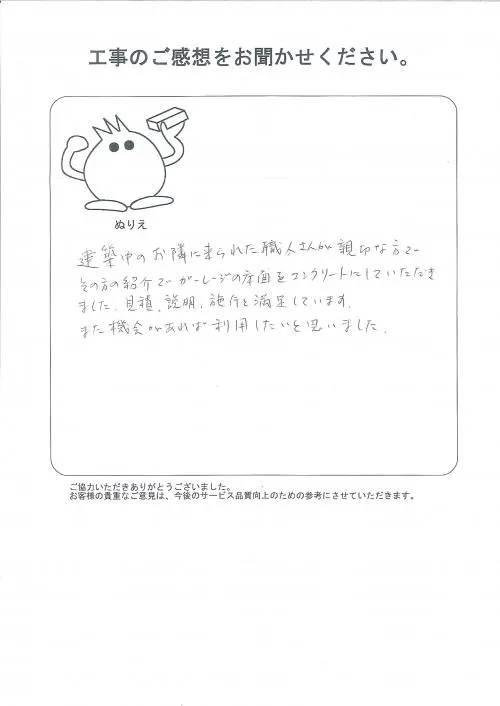 工事のご感想をお聞かせください。
ぬりえ
建築中のお隣に来られた職人さんが親切な方で
その方の紹介でガレージの床面をコンクリートにしていただき
ました。見積、説明、施行と満足しています。
また機会があれば利用したいと思いました。
ご協力いただきありがとうございました。
お客様の貴重なご意見は、今後のサービス品質向上のための参考にさせていただきます。